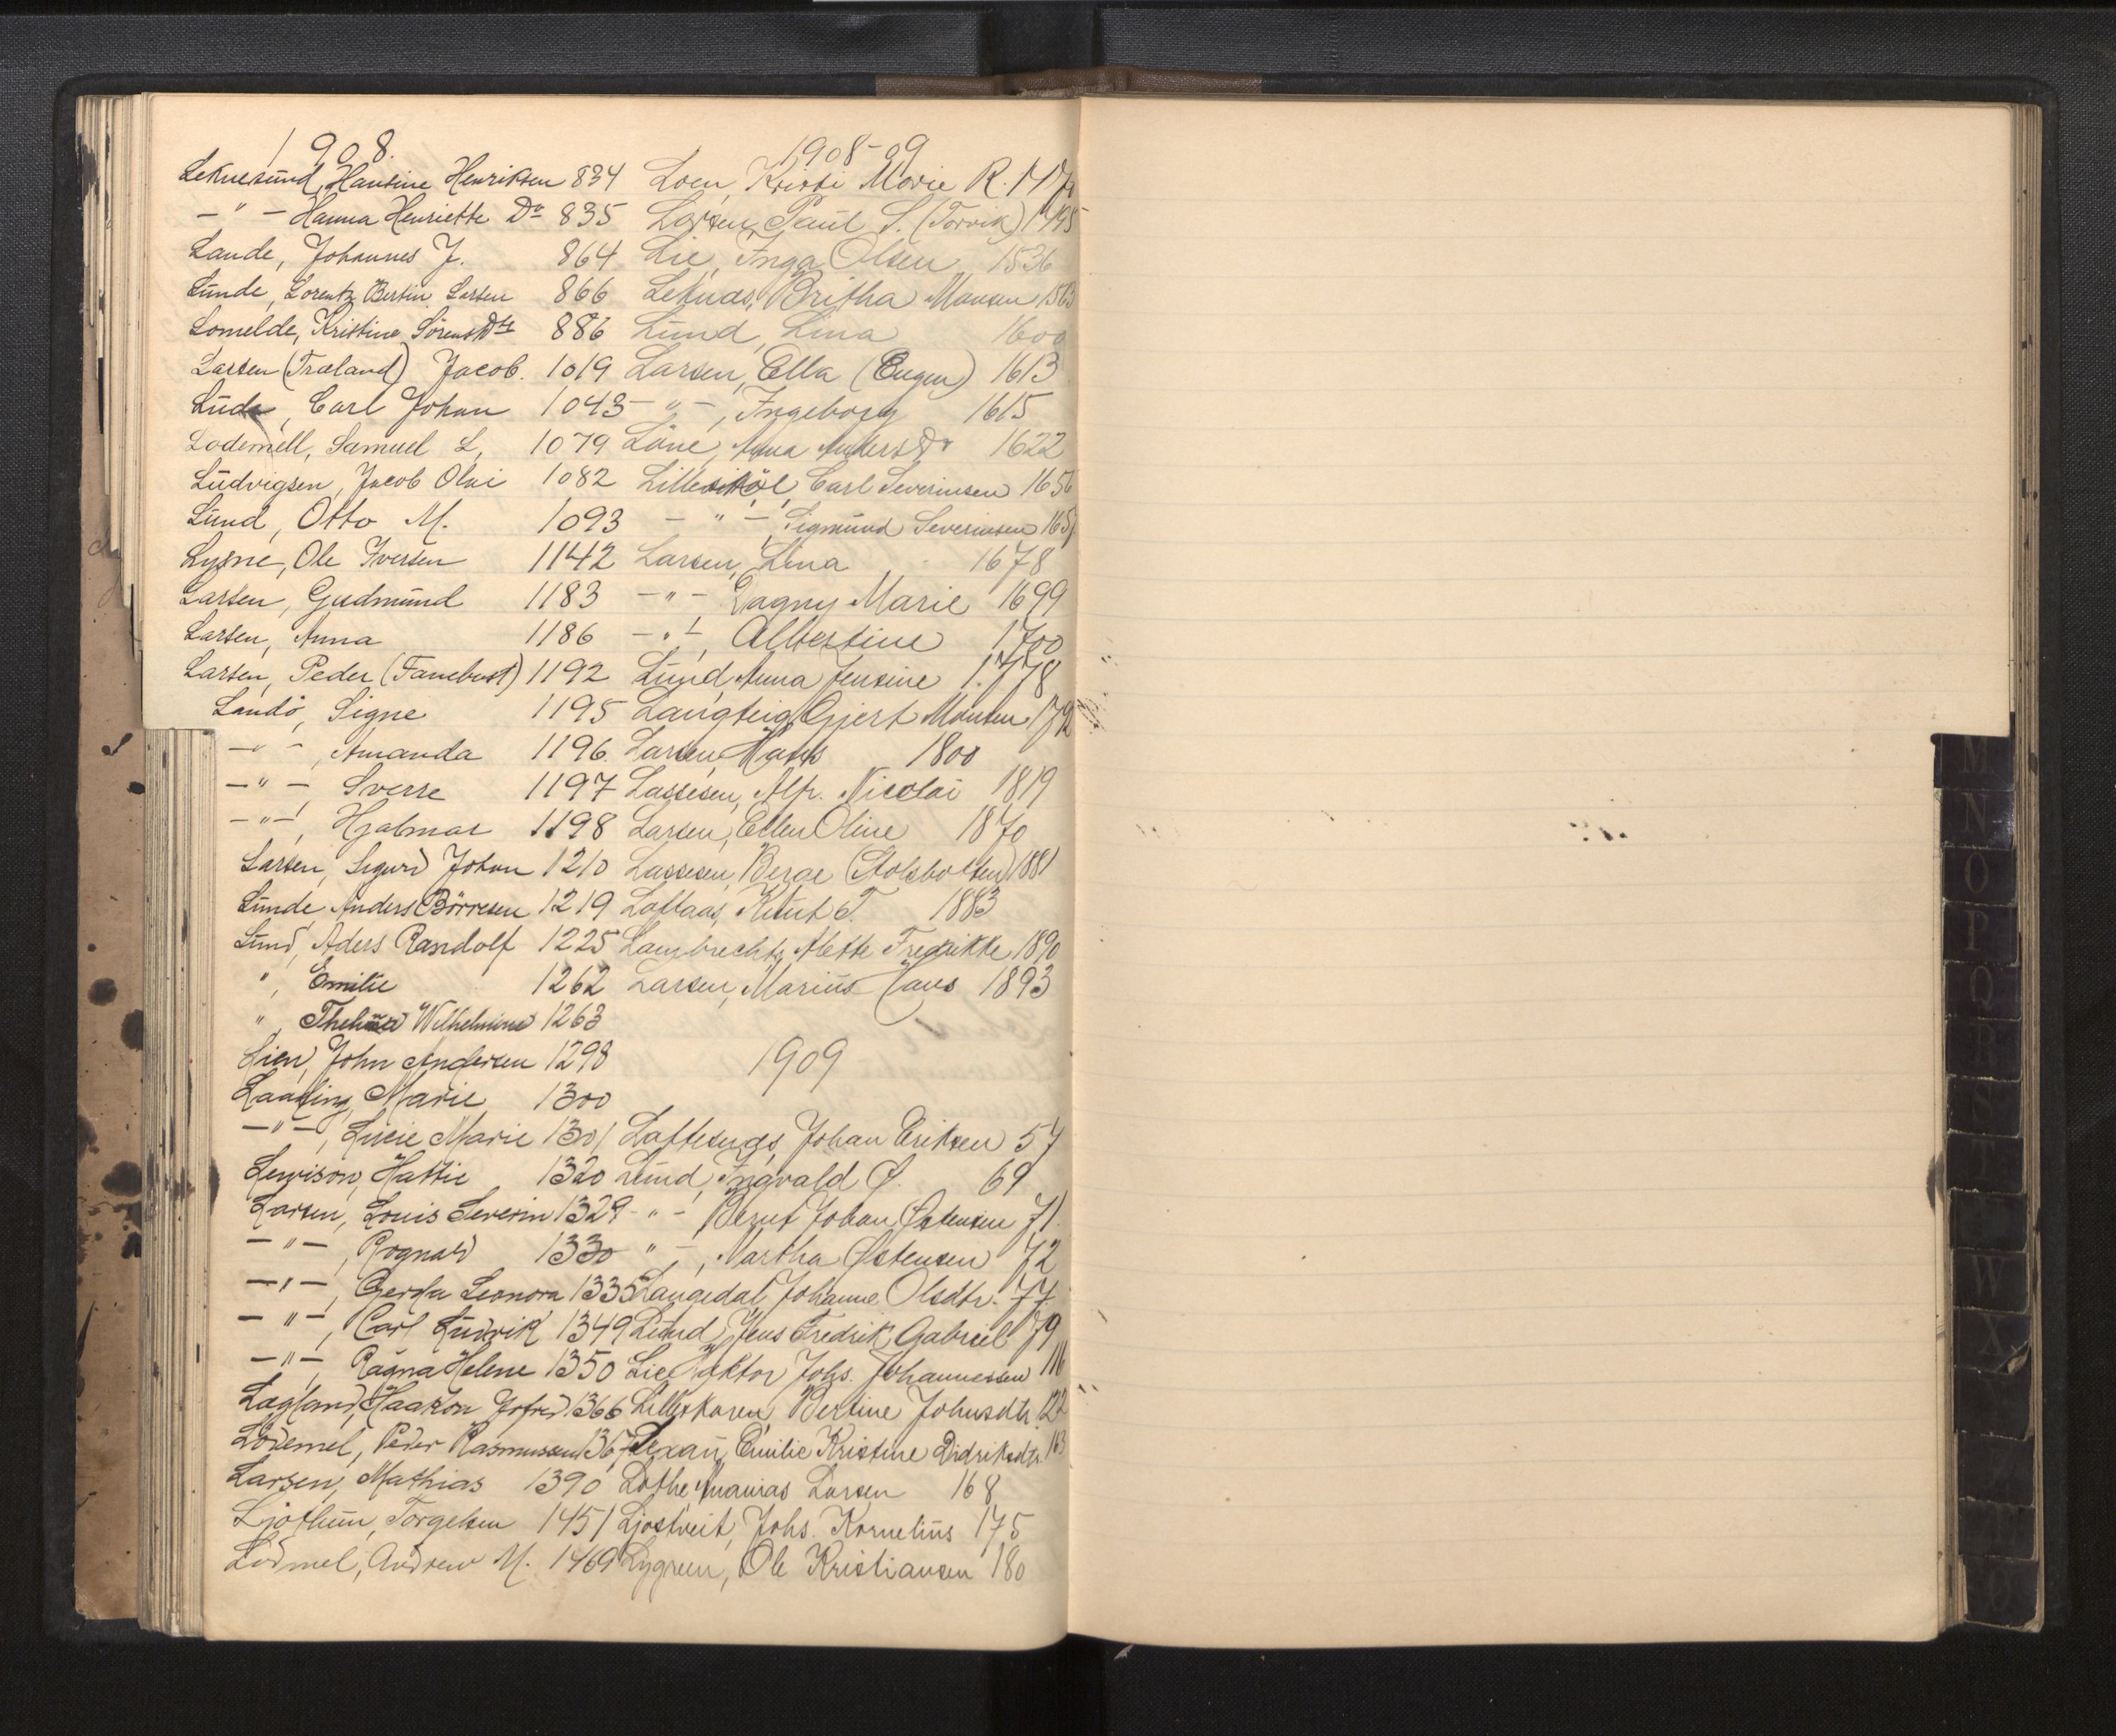 1908.
Leknesund, Hansine Henriksen 834
— " — Hanna Henriette Do 835
Lande, Johannes J. 864
Lunde, Lorentz Bertin Larsen 866
Lomelde, Kristine Sörensdtr 886
Larsen (Træland) Jacob. 1019
Lude, Carl Johan 1043
Lodemell, Samuel L, 1079
Ludvigsen, Jacob Olai 1082
Lund, Otto M. 1093
Lysne, Ole Iversen 1142
Larsen, Gudmund 1183
Larsen, Anna 1186
Larsen, Peder (Fanebust) 1192
Landö, Signe 1195
— " —, Amanda 1196
— " —, Sverre 1197
— " —, Hjalmar 1198
Larsen, Sigurd Johan 1210
Lunde Anders Börresen 1219
Lund, Aders Randolf 1225
", Emilie 1262
", Wilhelmine 1263
Lien, John Andersen 1298
Marie 1300
— " —, Lucie Marie 1301
Lewison, Hattie 1320
Larsen, Louis Severin 1329
— " —, Rognald 1330
— " —, Gerda Leonora 1335
— " —, Carl Ludvik 1349
— " —, Ragna Helene 1350
Lagland, Haakon Jofred 1366
Lödemel, Peder Rasmussen 1367
Larsen, Mathias 1390
Ljothun, Torgelsen 1451
Lödmel, Andrew M. 1469
1908-09
Loen, Kristi Marie R. 1470
Larsen, Paul S. (Torvik) 1495
Lie, Inga Olsen 1536
Leknas, Britha Monsen 1563
Lund, Lina 1600
Larsen, Ella (Eugen) 1613
— " —, Ingeborg 1615
Löne, Anna Andersdr 1622
Lillesköl, Carl Severinsen 1656
— " —, Sigmund Severinsen 1657
Larsen, Lina 1678
— " — Dagny Marie 1699
— " —, Albertine 1700
Lund, Anna Jensine 1778
Langteig, Gjert Monsen 1792
Larsen, Hans 1800
Lassesen, Alfr. Nicolai 1819
Larsen, Ellen Oline 1870
Lassesen, Berge (Stolsbotten) 1881
Loftaas, Knut T. 1883
Lambrechts, Alette Fredrikke 1890
Larsen, Marius Claus 1893
1909
Loftesnes, Johan Eriksen 57
Lund, Ingvald Ø. 69
— " — Bernt Johan Østensen 71
" —, Martha Østensen 72
Langedal, Johanne Olsdtr. 77
Lund, Jens Fredrik Gabriel 79
Lie, Johs. Johannessen 116
Lilleskaren, Bertine Johnsdtr. 122
Lexau, Emilie Kristine Didriksdtr. 163
Lothe, Ananias Larsen 168
Ljostveit, Johs. Kornelius 175
Lygreen, Ole Kristiansen 180
M
N
O
P
Q
R
S
T
W
X